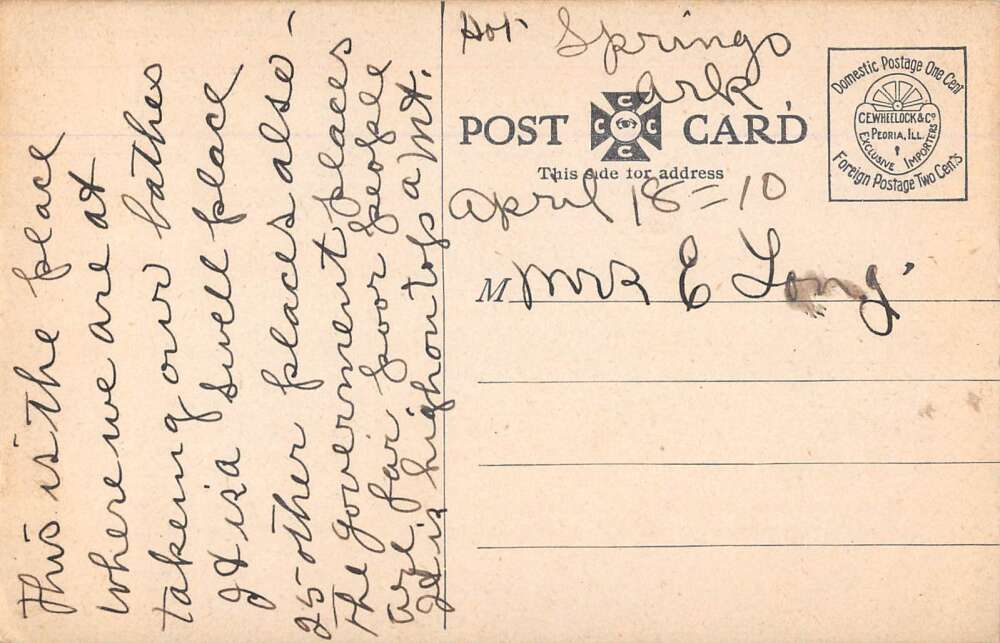 This is the place
where we are at
takeing our bathes
It is a swell place
25 other places alse -
the government places
are fair poor people
It is high on tops a Mt.
Hot Springs
Ark
POST CARD
C C C C
This side for address
April 18 = 10
M Mrs E Long
Domestic Postage One Cent
C.E. WHEELOCK & Co
PEORIA, ILL.
EXCLUSIVE IMPORTERS
Foreign Postage Two Cents